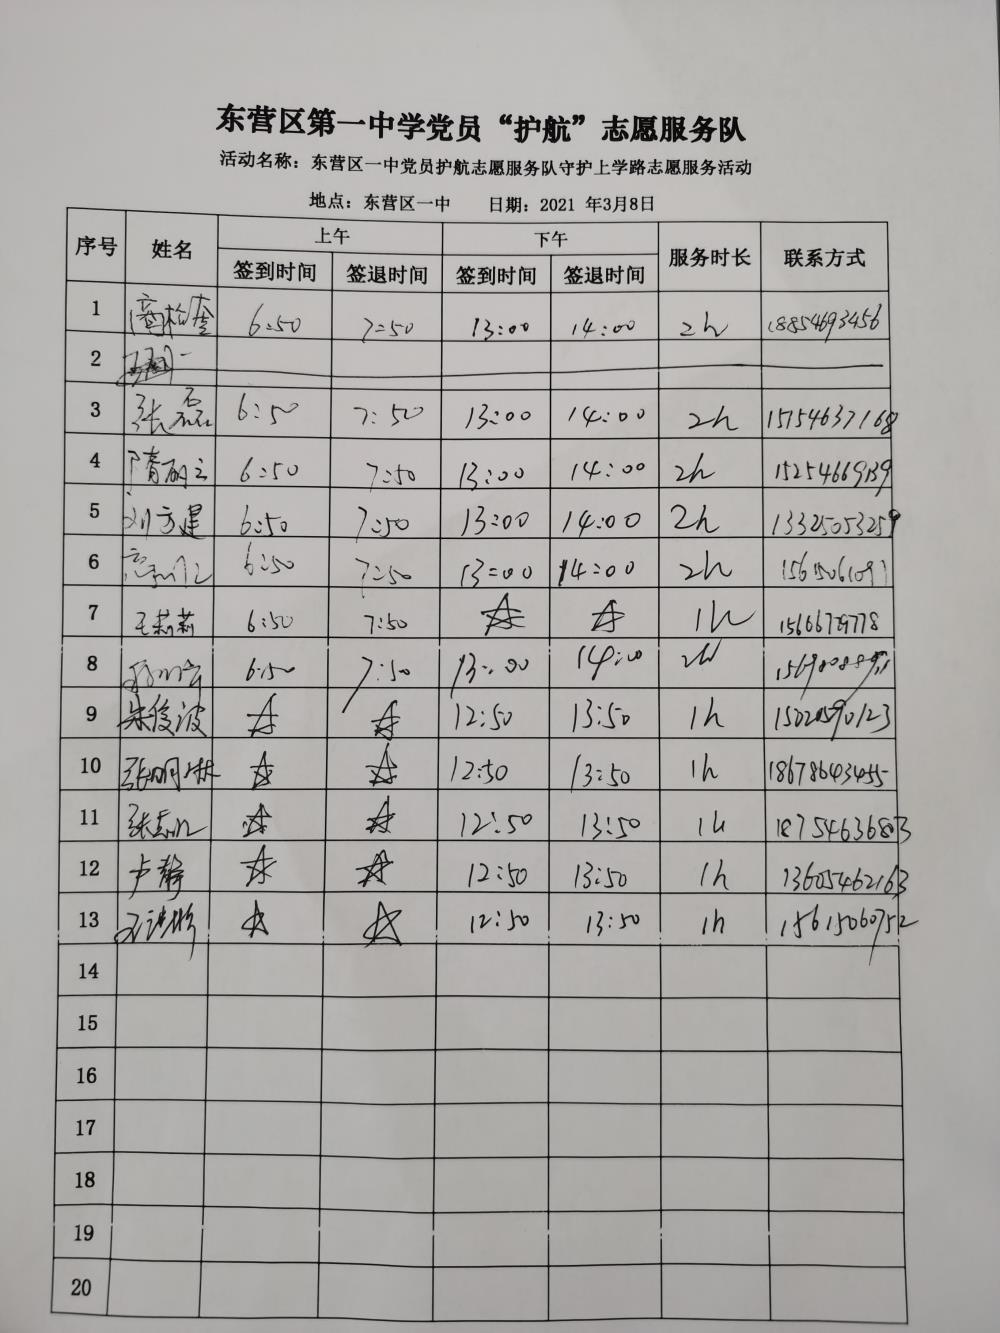 东营区第一中学党员“护航”志愿服务队
活动名称：东营区一中党员护航志愿服务队守护上学路志愿服务活动
地点：东营区一中 日期：2021 年3月8日
序号 姓名 上午 下午 服务时长 联系方式
签到时间 签退时间 签到时间 签退时间
1 6:50 7:50 13:00 14:00 2h 18854693456
2
3 张磊 6:50 7:50 13:00 14:00 2h 15154637168
4 6:50 7:50 13:00 14:00 2h
5 刘方建 6:50 7:50 13:00 14:00 2h 13325053259
6 6:50 7:50 13:00 14:00 2h
7 王莉莉 6:50 7:50 ☆ ☆ 1h
8 6:50 7:50 13:00 14:00 2h
9 朱俊波 ☆ ☆ 12:50 13:50 1h
10 张明琳 ☆ ☆ 12:50 13:50 1h 18678643455
11 ☆ ☆ 12:50 13:50 1h 18754636803
12 卢静 ☆ ☆ 12:50 13:50 1h 13605462163
13 ☆ ☆ 12:50 13:50 1h 15615060752
14
15
16
17
18
19
20